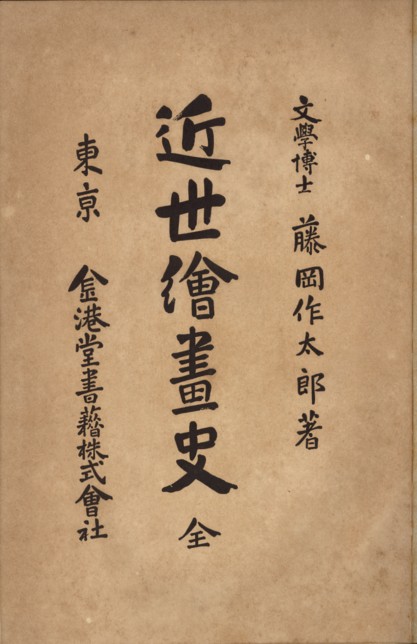 文學博士 藤岡作太郎著
近世繪畫史 全
東京 金港堂書籍株式會社